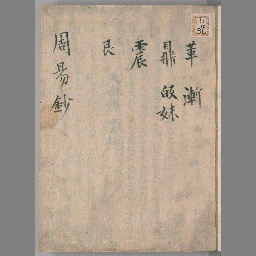 革 漸
鼎 皈妹
震
艮
周易鈔